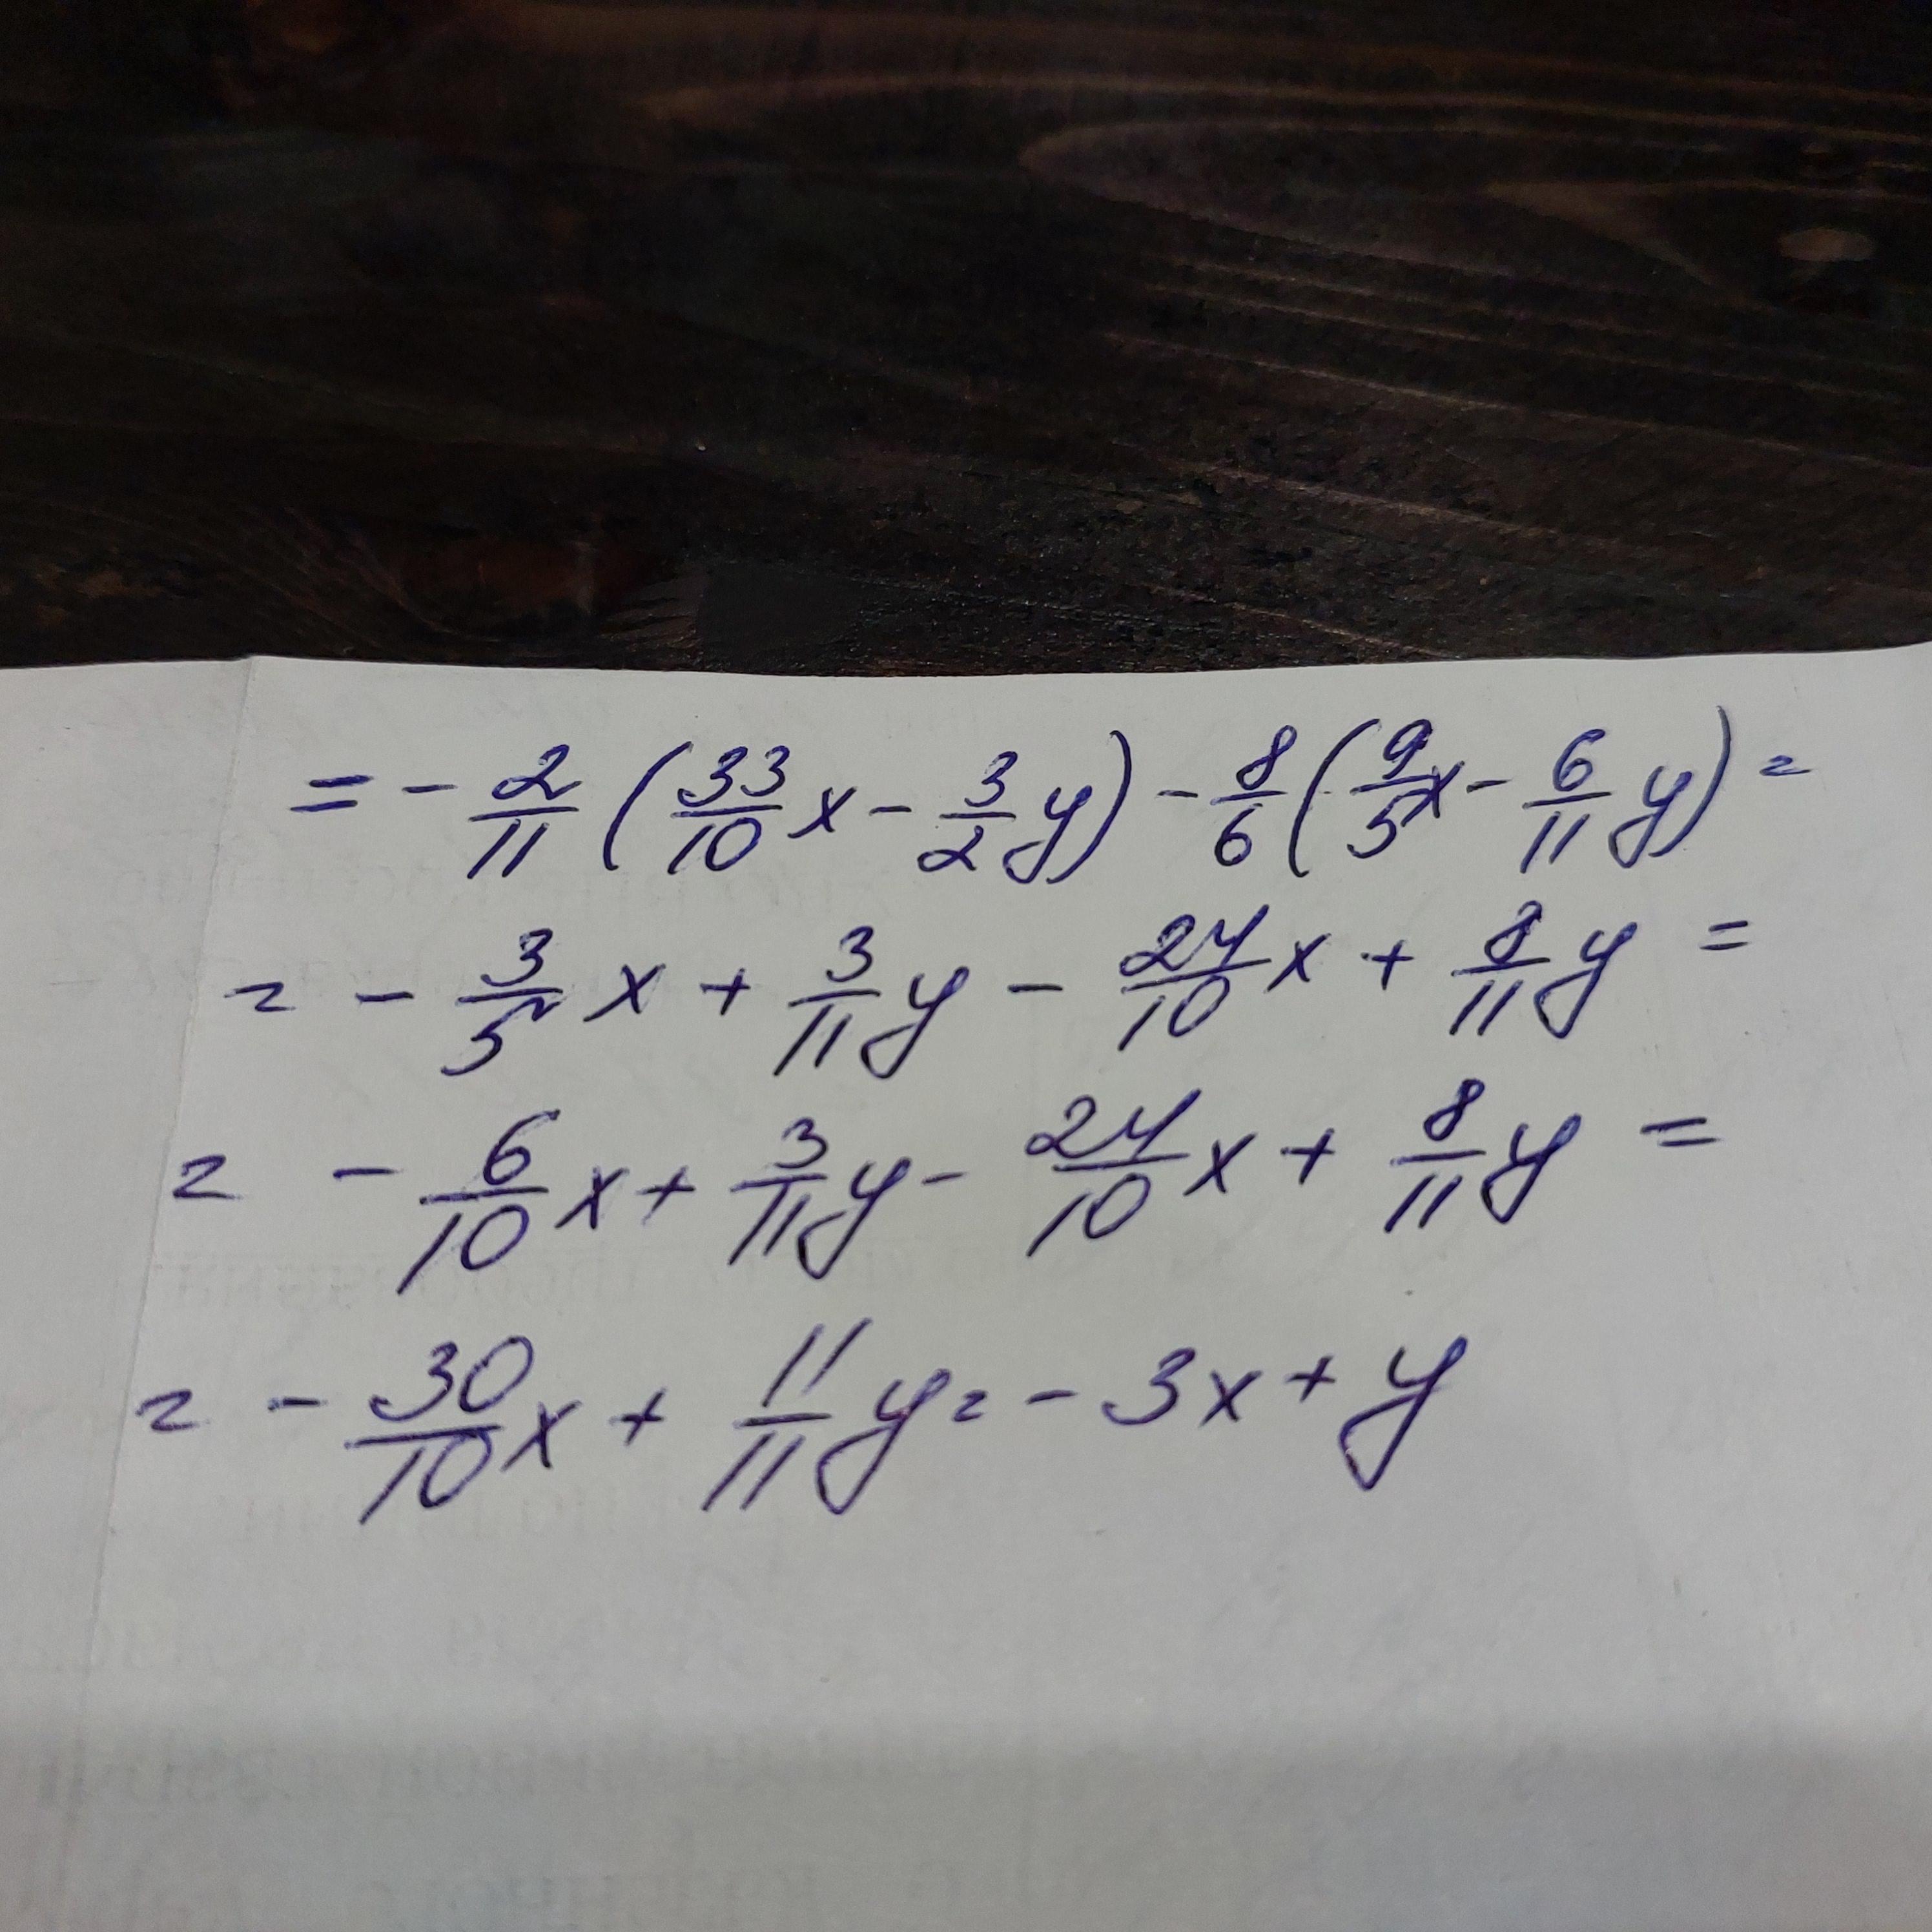 = - 2/11 (33/10 x - 3/2 y) - 8/6 (9/5 x - 6/11 y) =
= - 3/5 x + 3/11 y - 24/10 x + 8/11 y =
= - 6/10 x + 3/11 y - 24/10 x + 8/11 y =
= - 30/10 x + 11/11 y = - 3x + y